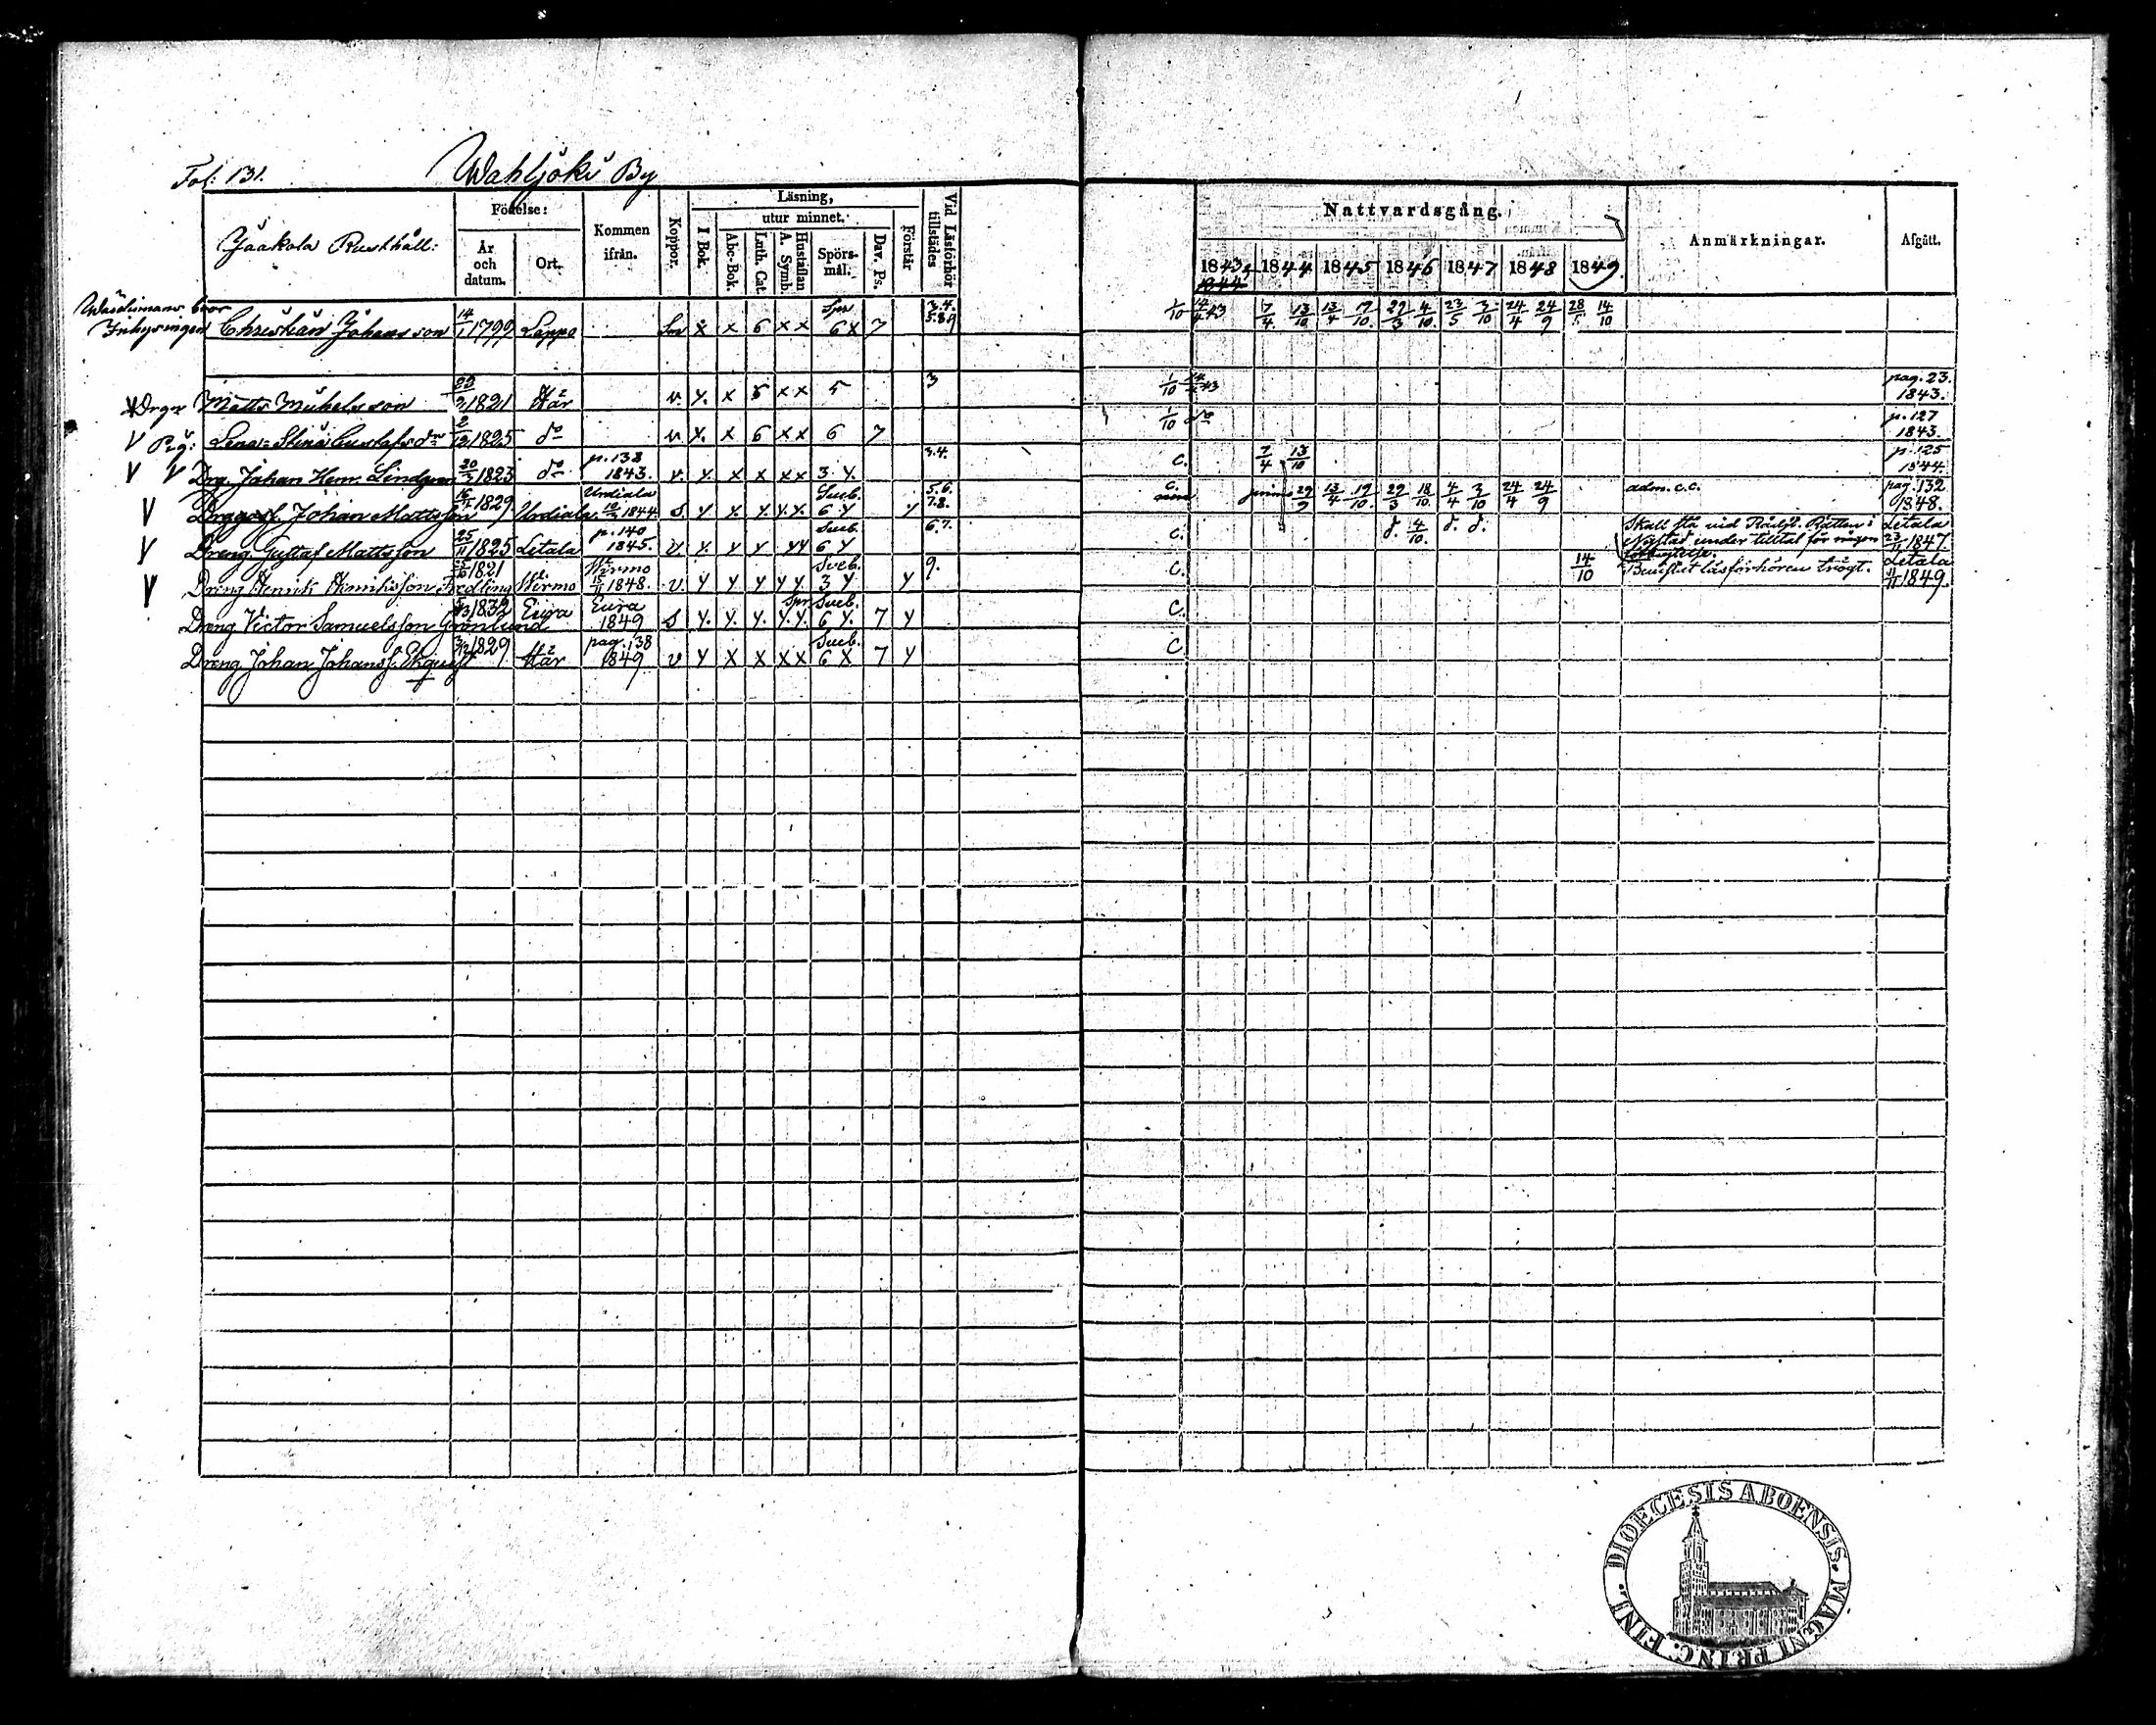 Fol: 131. Wahljoki By
Jaakola Rusthåll:
Födelse:
År och datum.
Ort.
Kommen ifrån.
Koppor.
Läsning,
I Bok.
utur minnet.
Abc-Bok.
Luth. Cat.
Hustaflan A. Symb.
Spörsmål.
Dav. Ps.
Förstår
Vid Läsförhör tillstädes
Nattvardsgång.
1843 1844 1845 1846 1847 1848 1849.
Anmärkningar.
Afgått.
Inhysingen Christian Johansson 14/1 1799 Lappo x x 6 x x Spr 6 x 7 1/10 7/4 13/10 13/4 19/10 29/3 4/10 23/5 3/10 24/4 24/9 28/5 14/10
Matts Michelsson 1821 Här v. y. x 5 x x 5 3 1/10 pag. 23. 1843.
Pig: Lena Stina Gustafsdr 2/12 1825 do v. x. x 6 x x 6 7 1/10 do p. 127 1843.
Drg. Johan Henr. Lindgren 20/3 1823 do p. 138 1843. v. y. x x x x 3 y. 3.4. C. 7/4 13/10 p. 125 1844.
Johan Mattsson 1829 Urdiala Urdiala 1844 s y x y y. y. Sveb. 6 y y 5.6. 7.8. C. 29/9 13/4 19/10 29/3 18/10 4/4 3/10 24/4 24/9 adm. c.c. pag. 132 1848.
Dreng Gustaf Mattsson 25/11 1825 Letala p. 140 1845. v y. y y y y Sveb. 6 y 6.7. C. d. 4/10. d. d. Skall stå vid Rådst. Rätten i Nystad under tilltal för någon Letala 23/11 1847.
Dreng Henrik Henriksson Fredling 1821 Wirmo Wirmo 15/11 1848. v. y y y y y Sveb. 3 y y 9. C. 14/10 Bevistat läsförhören trögt. Letala 11/11 1849.
Dreng Victor Samuelsson Grönlund 1832 Eura Eura 1849 s y. y. y. y. y. Spr Sveb. 6 y. 7 y C.
Dreng Johan Johanss. Ekqvist 1829 Här pag. 138 1849 v y x x x x Sveb. 6 x 7 y C
DIOECESIS ABOENSIS. MAGNI PRINC. FINL.